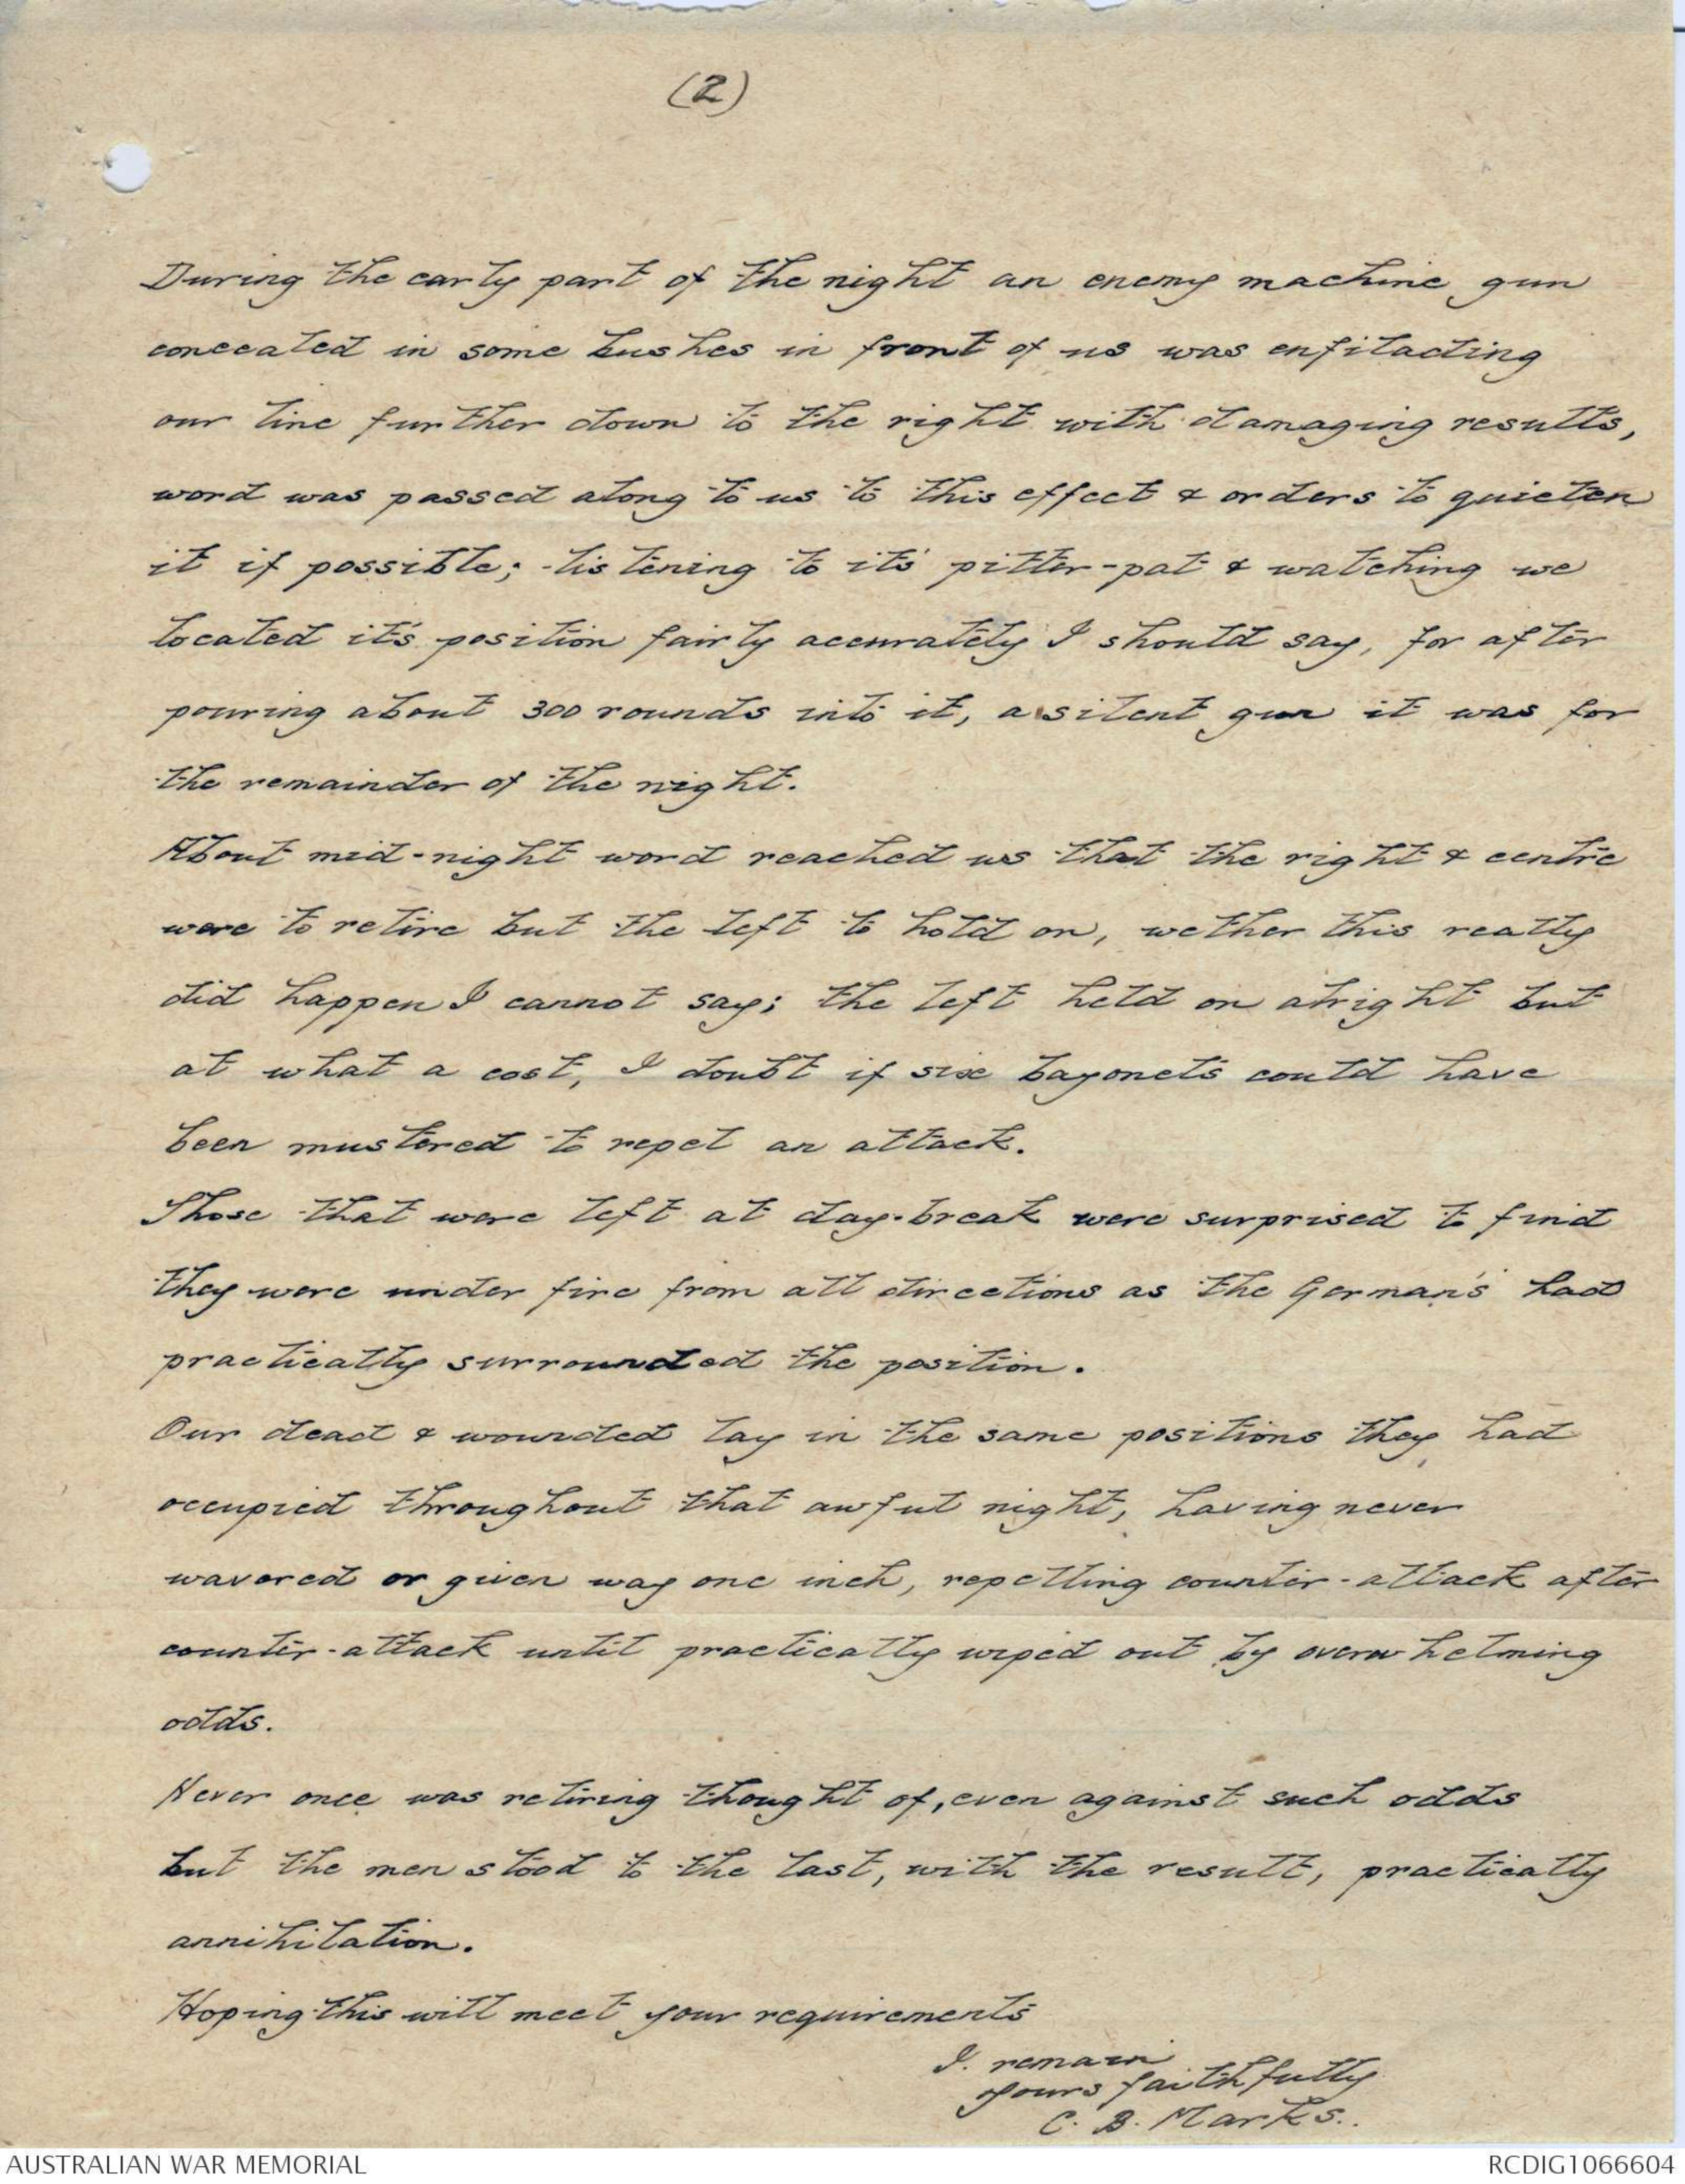 (2)
During the early part of the night an enemy machine gun
concealed in some bushes in front of us was enfilading
our line further down to the right with damaging results,
word was passed along to us to this effect & orders to quieten
it if possible; - listening to it's pitter-pat & watching we
located it's position fairly accurately I should say, for after
pouring about 300 rounds into it, a silent gun it was for
the remainder of the night.
About mid-night word reached us that the right & centre
were to retire but the left to hold on, wether this really
did happen I cannot say; the left held on alright but
at what a cost, I doubt if six bayonets could have
been mustered to repel an attack.
Those that were left at day-break were surprised to find
they were under fire from all directions as the German's had
practically surrounded the position.
Our dead & wounded lay in the same positions they had
occupied throughout that awful night, having never
wavered or given way one inch, repelling counter-attack after
counter-attack until practically wiped out by overwhelming
odds.
Never once was retiring thought of, even against such odds
but the men stood to the last, with the result, practically
annihilation.
Hoping this will meet your requirements
I. remain
yours faithfully
C. B. Marks..
AUSTRALIAN WAR MEMORIAL
RCDIG1066604